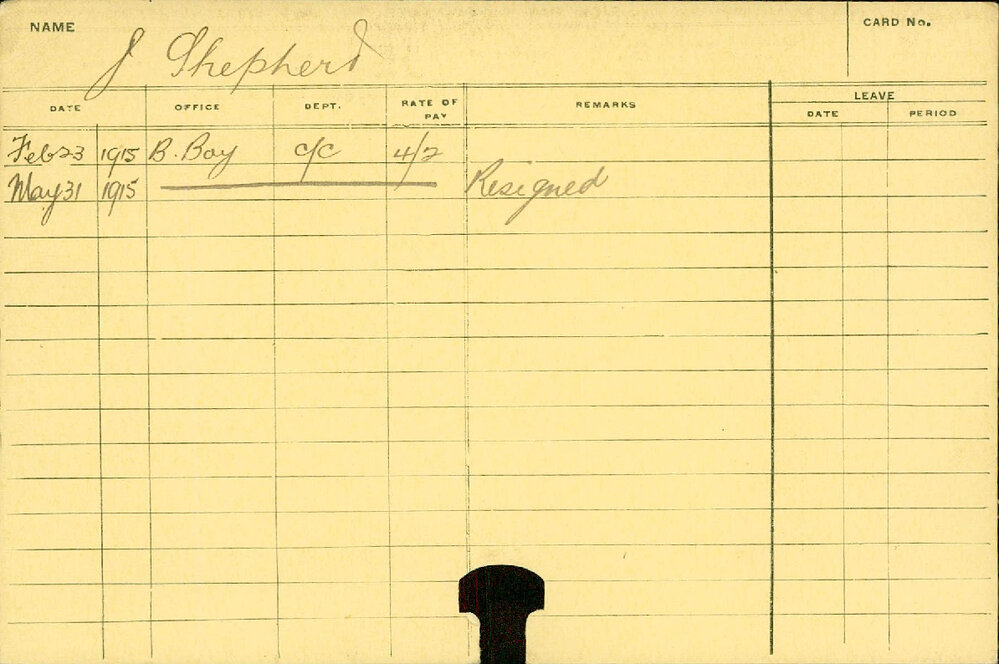 NAME J Shepherd CARD No.
DATE OFFICE DEPT. RATE OF PAY REMARKS LEAVE
DATE PERIOD
Feb 23 1915 B. Boy c/c 4/2
May 31 1915 Resigned